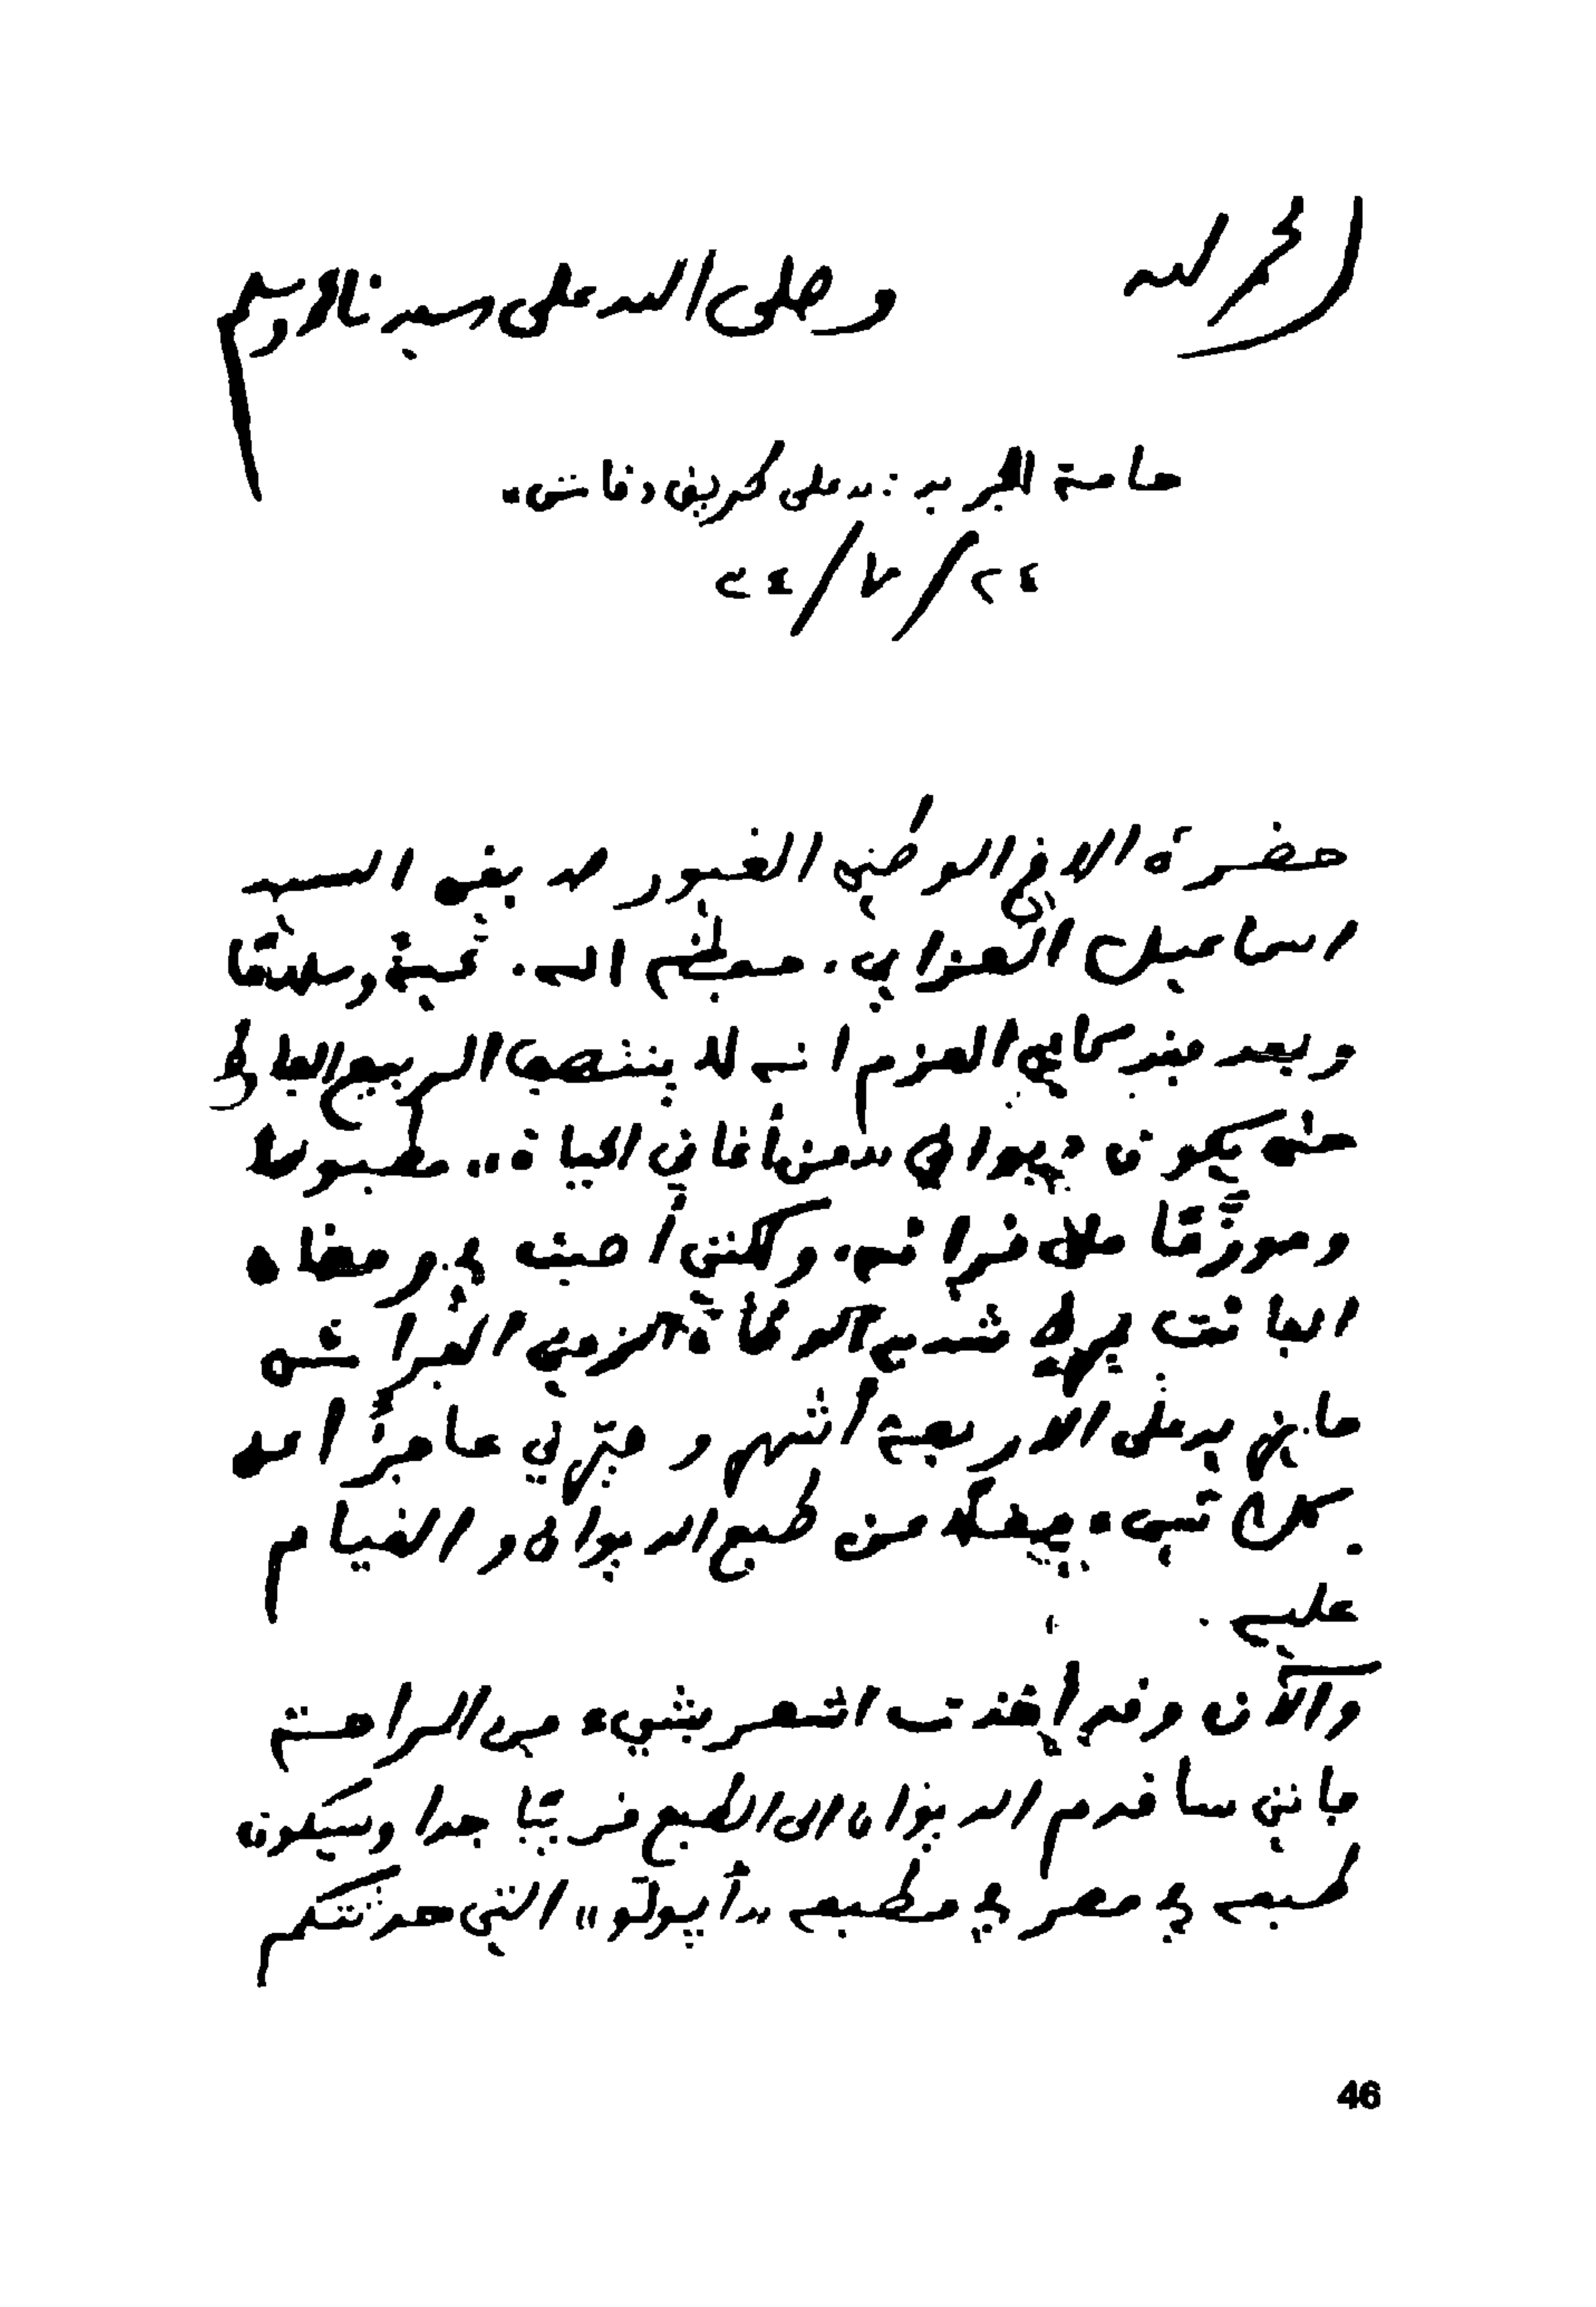 الحمد لله
وصلى الله على سيدنا
حامة الجريد: على
٢٤/٧/
حضرة الأخ الوطني الغيور صديقي السيد
اسماعيل العزابي. حفظه الله. تحية وسلاما
وبعد فقد كان في العزم انه لا ينتصف الربيع
حتى يكون ديواني "من أغاني الحياة" مطبوعا
وموزعا على قرائه. ولكنني أصبت في رمضان
الفائت بمرض شديد الوطأة ألزمني الفراش
ما يزيد على الأربعة أشهر وصيرني عاجزا
بكل شيء فضلا من طبع الديوان والقيام
عليه.
والآن وقد أخذت اشعر بشيء من الراحة
فإنني سأقدم الديوان الى الطبع قريبًا جدا وسيكون
طبعه في مصر في مطبعة "أپولو" التي حدثتكم
46